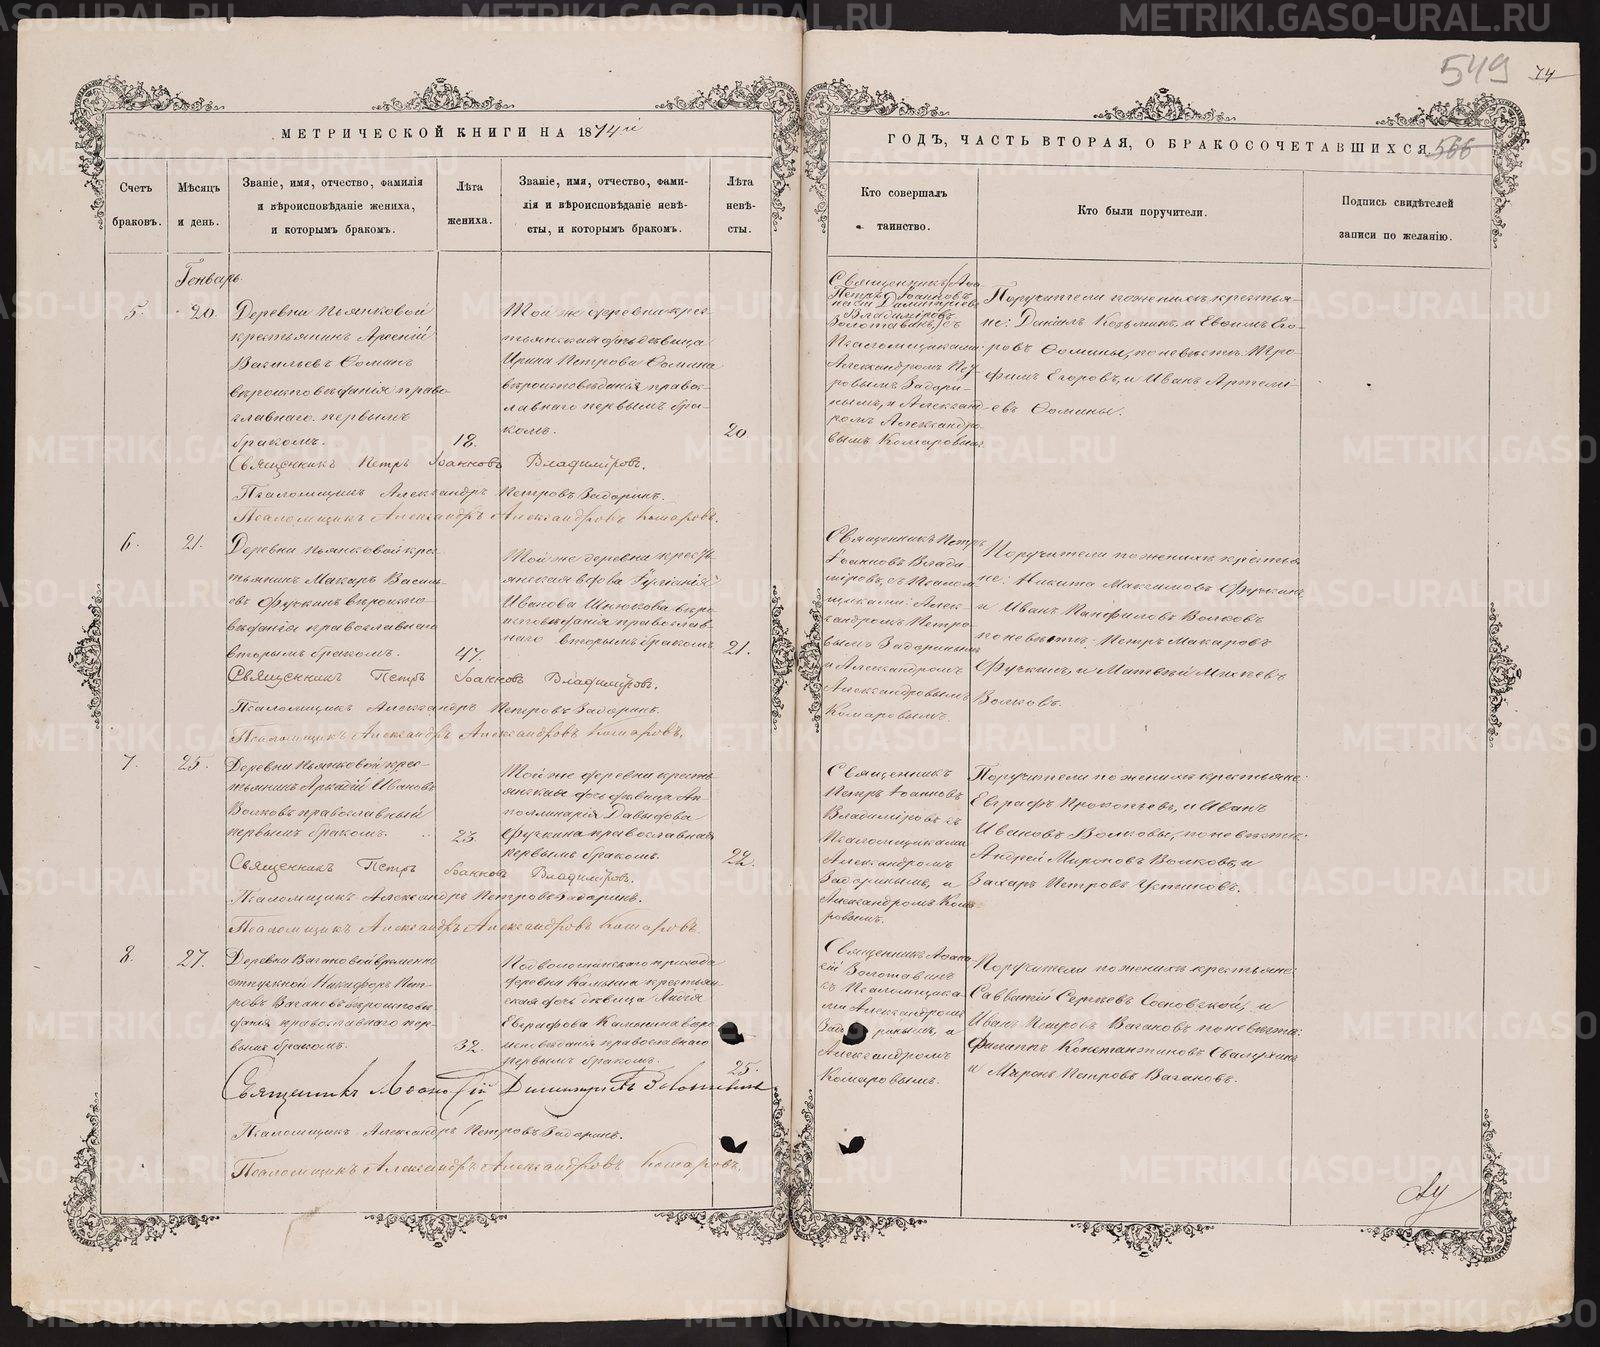 549 74
МЕТРИЧЕСКОЙ КНИГИ НА 1874й
ГОДЪ, ЧАСТЬ ВТОРАЯ, О БРАКОСОЧЕТАВШИХСЯ. 566
Счетъ браковъ.
Мѣсяцъ и день.
Званіе, имя, отчество, фамилія
и вѣроисповѣданіе жениха,
и которымъ бракомъ.
Лѣта
жениха.
Званіе, имя, отчество, фами-
лія и вѣроисповѣданіе невѣ-
сты, и которымъ бракомъ.
Лѣта
невѣ-
сты.
Кто совершалъ
таинство.
Кто были поручители.
Подпись свидѣтелей
записи по желанію.
Генварь
5. 20.
Деревни Пьянковой
крестьянинъ Арсеній
Васильевъ Ѳоминъ
вѣроисповѣданія право-
славнаго первымъ
бракомъ.
18.
Той же деревни крес-
тьянская дочь дѣвица
Ирина Петрова Ѳомина
вѣроисповѣданія правос-
лавнаго первымъ бра-
комъ.
20.
Петръ Іоанновъ
Владиміровъ
Псаломщиками
Александромъ Пет-
ровымъ Задори-
нымъ, и Александ-
ромъ Александро-
вымъ Комаровымъ
Поручители по женихѣ крестья-
не: Данiилъ Козьминъ и Евѳимъ Его-
ровъ Ѳомины, по невѣстѣ Тро-
фимъ Егоровъ, и Иванъ Артемі-
евъ Ѳомины.
Священникъ Петръ Іоанновъ Владиміровъ.
Псаломщикъ Александръ Петровъ Задоринъ.
Псаломщикъ Александръ Александровъ Комаровъ.
6. 21.
Деревни Пьянковой крес-
тьянинъ Макаръ Василь-
евъ Фучкинъ вѣроиспо-
вѣданія православнаго
вторымъ бракомъ.
47.
Той же деревни кресть-
янская вдова Іуліанія
Иванова Инюкова вѣро-
исповѣданія православ-
наго вторымъ бракомъ
21.
Священникъ Петръ
Іоанновъ Влади-
міровъ, съ Псалом-
щиками: Алек-
сандромъ Петро-
вымъ Задоринымъ
и Александромъ
Александровымъ
Комаровымъ.
Поручители по женихѣ крестья-
не: Никита Максимовъ Фучкинъ
и Иванъ Панфиловъ Волковъ
по невѣстѣ: Петръ Макаровъ
Фучкинъ, и Матвѣй Михеевъ
Волковъ.
Священникъ Петръ Іоанновъ Владиміровъ.
Псаломщикъ Александръ Петровъ Задоринъ.
Псаломщикъ Александръ Александровъ Комаровъ.
7. 25.
Деревни Пьянковой крес-
тьянинъ Аркадій Ивановъ
Волковъ православный
первымъ бракомъ.
23.
Той же деревни кресть-
янская дочь дѣвица Ап-
поллинарія Давыдова
Фучкина православная
первымъ бракомъ.
22.
Священникъ
Петръ Іоанновъ
Владиміровъ съ
Псаломщиками
Александромъ
Задоринымъ, и
Александромъ Кома-
ровымъ.
Поручители по женихѣ крестьяне:
Евграфъ Прокопьевъ, и Иванъ
Ивановъ Волковы, по невѣстѣ:
Андрей Мироновъ Волковъ, и
Захаръ Петровъ Устиновъ.
Священникъ Петръ Іоанновъ Владиміровъ.
Псаломщикъ Александръ Петровъ Задоринъ.
Псаломщикъ Александръ Александровъ Комаровъ.
8. 27.
Деревни Вагановой временно
отпускной Никифоръ Пет-
ровъ Вагановъ вѣроисповѣ-
данія православнаго пер-
вымъ бракомъ.
32.
Подволошинскаго прихода
деревни Калмина крестьян-
ская дочь дѣвица Лидія
Евграфова Калинина вѣро-
исповѣданія православнаго
первымъ бракомъ.
25.
Священникъ Аѳана-
сій Золотавинъ
съ Псаломщика-
ми Александромъ
Задоринымъ, и
Александромъ
Комаровымъ.
Поручители по женихѣ крестьяне:
Савватій Сергѣевъ Сосновской, и
Иванъ Петровъ Вагановъ по невѣстѣ:
Филиппъ Константиновъ
и Миронъ Петровъ Вагановъ.
Священникъ Аѳанасій Димитріевъ Золотавинъ
Псаломщикъ Александръ Петровъ Задоринъ.
Псаломщикъ Александръ Александровъ Комаровъ.
METRIKI.GASO-URAL.RU